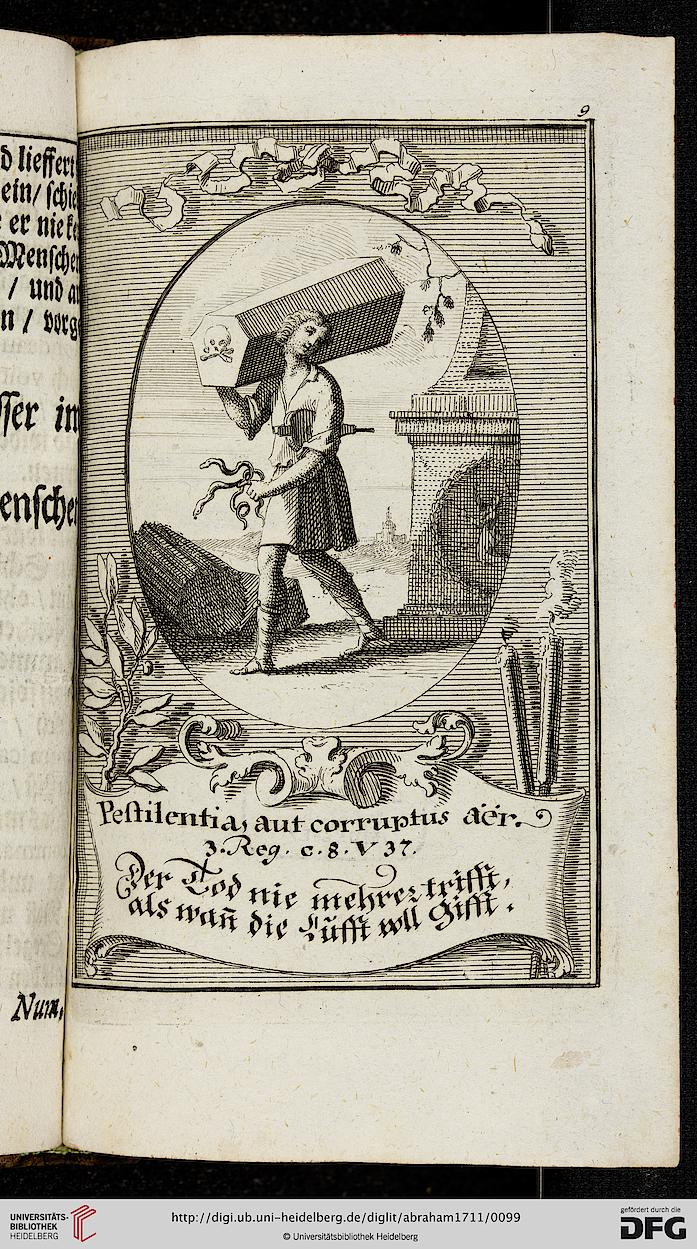 9
d lieffert
ein/ schie
er nie ke
Mensche
/ und a
n / vorg
sser in
ensche
Pestilentia, aut corruptus aër.
3. Reg. c. 8. V 37.
Der Tod nie mehrer trifft,
als wañ die Lufft voll Gifft.
Num.
UNIVERSITÄTS-
BIBLIOTHEK
HEIDELBERG
http://digi.ub.uni-heidelberg.de/diglit/abraham1711/0099
© Universitätsbibliothek Heidelberg
gefördert durch die
DFG